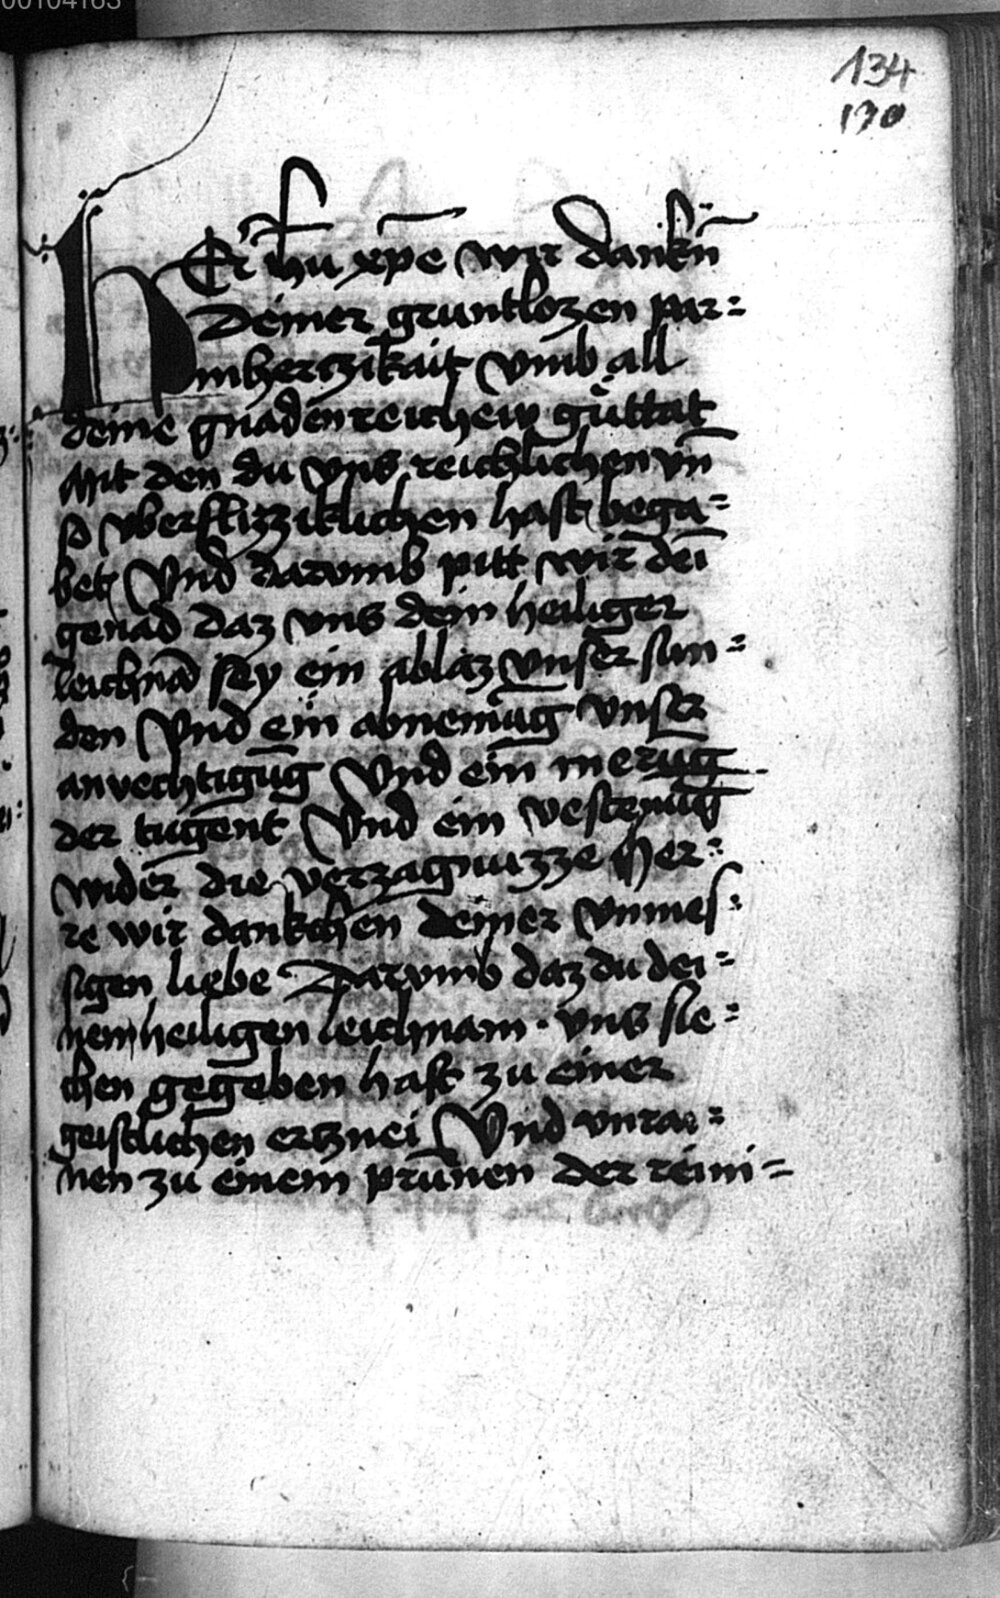 00104163
134
130
HEr ihu xpe wir dankñ
deiner gruntlozen par=
mherczikait vmb all
deine gnadenreichew guttat
Mit den du vns reichlichen vñ
so vberflizziklichen hast bega=
bet Vnd darvmb pitt wir dei
genad daz vns dein heiliger
leichnã sey ein ablaz vnser sun=
den Vnd ein abnemũg vnser
anvechtigũg Vnd ein merũg
der tugent Vnd ein vestenũg
wider die verzagnuzze Her=
re wir dankchen deiner vnmes=
sigen liebe Darvmb daz du dei=
nem heiligen leichnam · vns sie=
chen gegeben hast zu einer
geistlichen ertznei Vnd vnrai=
nen zu einem prũnen der reini=